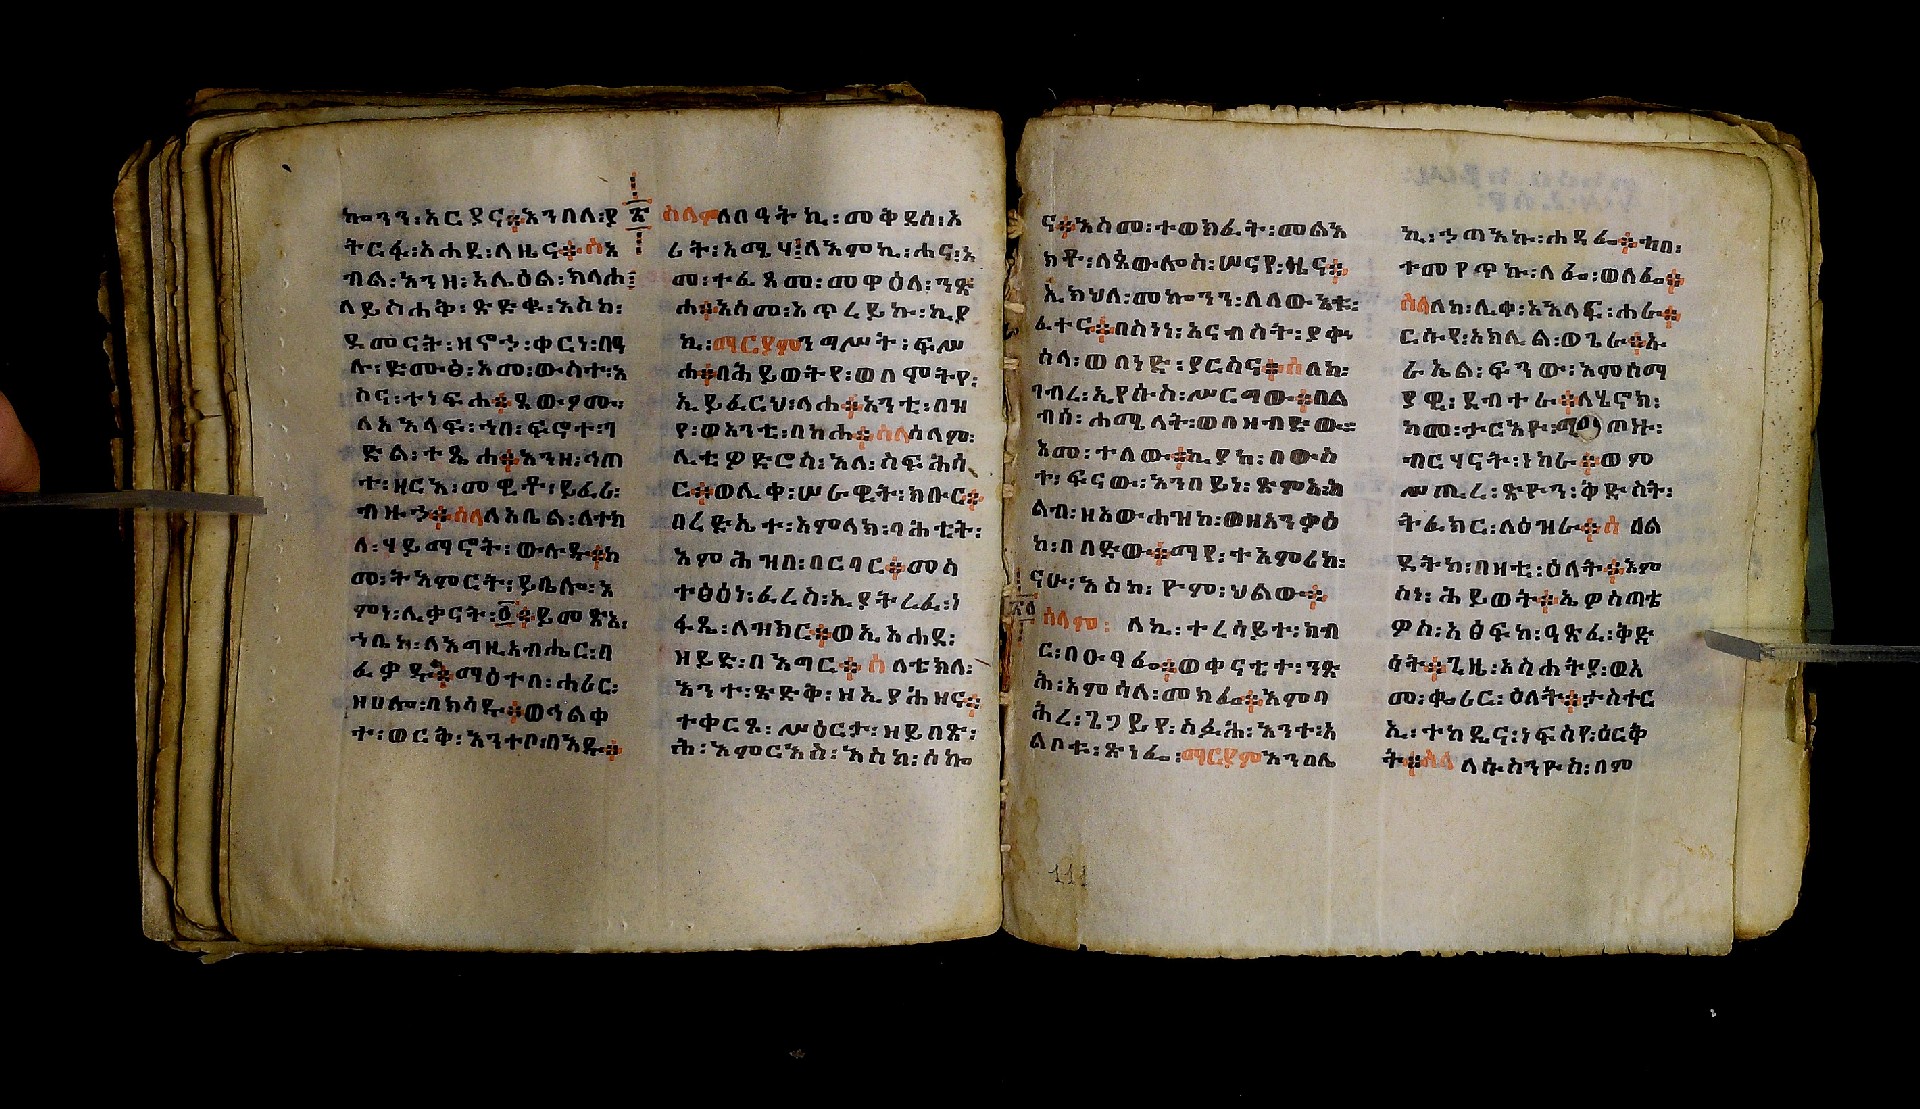 ኰንን፡አርያና፨እንበለ፡ያ
ትርፋ፡አሐደ፡ለዜና፨ስእ
ብል፡እንዘ፡አሌዕል፡ክላሐ፤
ለይስሐቅ፡ጻድቅ፡አስከ፡
ደመናት፡ዘኖኀ፡ቀርነ፡በዓ
ሉ፡ድሙፅ፡አመ፡ውስተ፡አ
ስና፡ተነፍሐ፨ጼውዖሙ፡
ለአእላፍ፡ኀበ፡ፍኖተ፡ገ
ድል፡ተጼሐ፨እንዘ፡ኀጠ
ተ፡ዘርእ፡መዊቶ፡ይፈሪ፡
ብዙኀ፨ሰላለአቤል፡ለተከ
ለ፡ሃይማኖት፡ውሉዱ፨ከ
መ፡ትእምርት፡ይቤሎ፡እ
ምነ፡ሊቃናት፡፩፨ይመጽእ፡
ኀቤከ፡ለእግዚአብሔር፡በ
ፈቃዱ፨ማዕተበ፡ሐሪር፡
ዘሀሎ፡በክሳዱ፨ወኅልቀ
ተ፡ወርቅ፡እንተቦበእዱ፨
ጽ
ሰላምለበዓትኪ፡መቅደሰ፡አ
ሪት፡አሚሃ፤ለእምኪ፡ሐና፡አ
መ፡ተፈጸመ፡መዋዕለ፡ንጽ
ሐ፨እስመ፡አጥረይኩ፡ኪያ
ኪ፡ማርያምንግሥት፡ፍሥ
ሐ፨በሕይወትየ፡ወበሞትየ፡
ኢይፈርህ፡ላሐ፨አንቲ፡በዝ
የ፡ወአንቲ፡በከሐ፨ሰላሰላም፡
ሊቲዎድሮስ፡አለ፡ስፍሕሳ
ር፨ወሊቀ፡ሠራዊት፡ክቡር፨
በረድኤተ፡አምላክ፡ባሕቲት፡
እምሕዝበ፡በርባር፨መስ
ተፅዕነ፡ፈረስ፡ኢያትረፈ፡ነ
ፋጺ፡ለዝክር፨ወኢአሐደ፡
ዘይድ፡በእግር፨ሰለቴክለ፡
እንተ፡ጽድቅ፡ዘኢያሕዘና፨
ተቀርጾ፡ሥዕርታ፡ዘይበጽ፡
ሕ፡እምርእስ፡እስከ፡ሰኰ
ና፨እስመ፡ተወክፈት፡መልእ
ክቶ፡ለጳውሎስ፡ሠናየ፡ዜና፨
ኢክህለ፡መኰንን፡ለለውጤቱ፡
ፈተና፨በስንነ፡አናብስት፡ያቍ
ስላ፡ወበነድ፡ያርስና፨ሰለከ፡
ገብረ፡ኢየሱስ፡ሥርግው፨በል
ብሰ፡ሐሚለት፡ወበዝብድው፡፡
እመ፡ተለው፨ኪያከ፡በውስ
ተ፡ፍናው፡እንበይነ፡ጽምእ፡ሕ
ልብ፡ዘአውሐዝከ፡ወዘእንቃዕ
ከ፡በበድው፨ማየ፡ተአምሪከ፡
ናሁ፡እስከ፡ዮም፡ህልው፨
ጽ፩
ሰላም፡ለኪ፡ተረሳይተ፡ክብ
ር፡በዑፃፌ፨ወቀናቲተ፡ንጽ
ሕ፡እምሰለ፡መክፌ፨እምባ
ሕረ፡ጌጋይየ፡ስፊሕ፡እንተ፡አ
ልቦቱ፡ጽንፈ፡ማርያምእንበሌ
ኪ፡ኀጣእኩ፡ሐዳፌ፨ቲበ፡
ተመየጥኩ፡ለፌ፡ወለፌ፨
ሰላለከ፡ሊቀ፡አእላፍ፡ሐራ፨
ርሱየ፡አክሊል፡ወጌራ፨ኡ
ራኤል፡ፍንው፡እምሰማ
ያዊ፡ደብተራ፨ለሄኖክ፡
ከመ፡ታርእዮ፡ማ ጦዙ፡
ብርሃናት፡ነከራ፨ወም
ሥጢረ፡ጽዮን፡ቅድስት፡
ትፈክር፡ለዕዝራ፨ሰ ዕል
ደትከ፡በዛቲ፡ዕለት፨እም
ስነ፡ሕይወት፨ኤዎስጣቴ
ዎስ፡አፅፍከ፡ዓጽፈ፡ቅድ
ሳት፨ጊዜ፡አስሐትያ፡ወአ
መ፡ቍሪር፡ዕለት፨ታስተር
ኢ፡ተከዲና፡ነፍስየ፡ዕርቅ
ት፨ሰላለሱስንዮስ፡በም
111